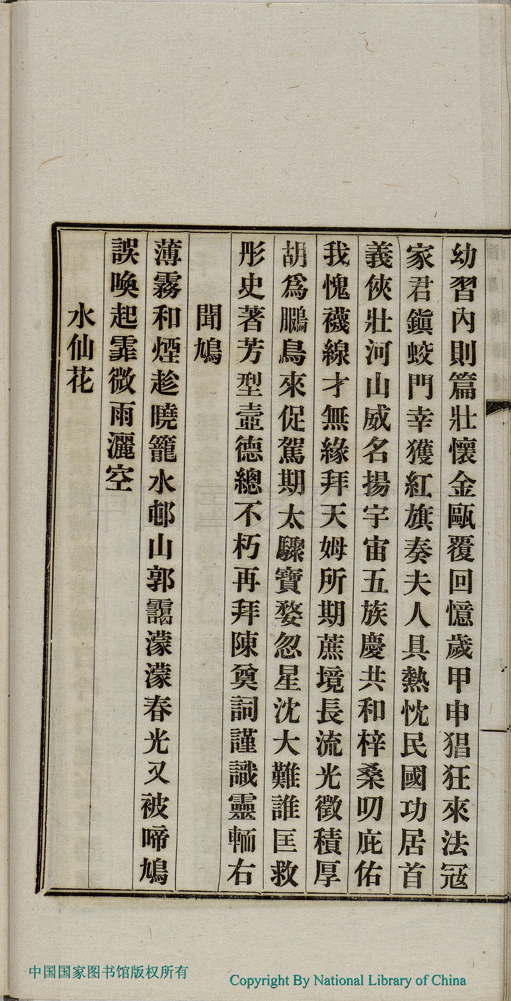 幼習內則篇壯懷金甌覆回憶歲甲申猖狂來法冦
家君鎭蛟門幸獲紅旗奏夫人具熱忱民國功居首
義俠壯河山威名揚宇宙五族慶共和梓桑叨庇佑
我愧襪線才無緣拜天姆所期蔗境長流光徵積厚
胡爲鵬鳥來促駕期太驟寶婺忽星沈大難誰匡救
彤史著芳型壼德總不朽再拜陳奠詞謹識靈輀右
聞鳩
薄霧和煙趁曉籠水邨山郭靄濛濛春光又被啼鳩
誤喚起霏微雨灑空
水仙花
中国国家图书馆版权所有
Copyright By National Library of China